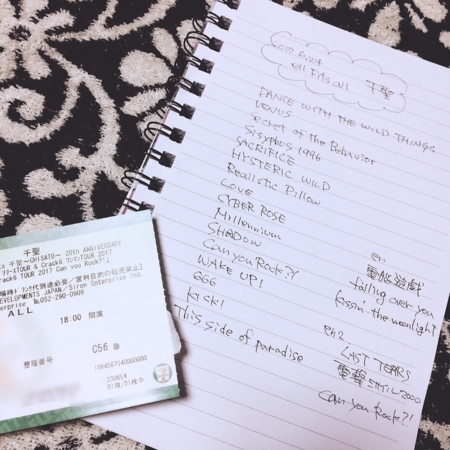 2017.6.24
ell.Fits all 千聖
DANCE WITH THE WILD THINGS
VENUS
Secret of the Behavior
Sisyphos 1996
SACRIFICE
HYSTERIC WILD
Realistic Pillow
LOVE
CYBER ROSE
Millennium
SHADOW
Can you Rock?!
WAKE UP!
666
KICK!
This side of paradise
en1
電脳遊戯
falling over you
kissin' the moonlight
en2
LAST TEARS
電撃SMILE2000
Can you Rock?!
千聖~CHISATO~ 20th ANNIVERSARY
TOUR & Crack6 ワンマンTOUR 2017
6 TOUR 2017 Can you Rock?!」
ドリンク代別途必要/営利目的の転売禁止】
DEVELOPMENTS JAPAN/Siren Enterprise Inc.
erprise TEL052-290-0909
ALL
18:00 開演
整理番号 C56 番
230654
01枚/01枚中